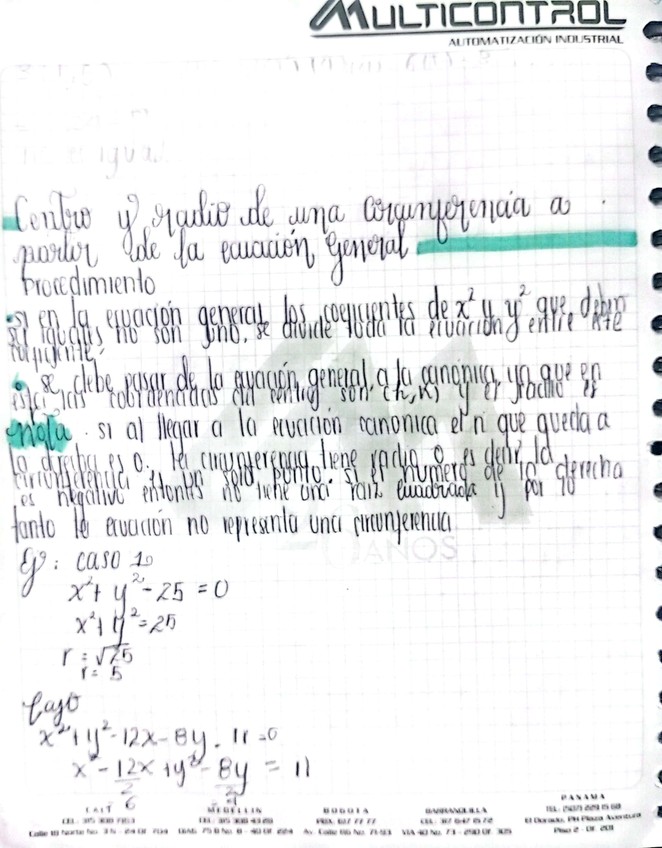 MULTICONTROL
AUTOMATIZACIÓN INDUSTRIAL
Centro y radio de una circunferencia a
partir de la ecuación general
Procedimiento
• si en la ecuación general los coeficientes de x² y y² que deben
ser iguales no son uno, se divide toda la ecuación entre este
coeficiente.
• se debe pasar de la ecuación general a la canónica, ya que en
esta las coordenadas del centro son (h,k) y el radio es
nota. si al llegar a la ecuación canonica el n que queda a
la derecha es 0. la circunferencia tiene radio 0 es decir la
circunferencia es un solo punto. si el numero de la derecha
es negativo entonces no tiene una raiz cuadrada y por lo
tanto la ecuación no representa una circunferencia
Ej: caso 1
x² + y² - 25 = 0
x² + y² = 25
r = √25
r = 5
Caso
x² + y² - 12x - 8y - 11 = 0
x² - 12x + y² - 8y = 11
2 2
6 4
AÑOS
CALI MEDELLIN BOGOTA BARRANQUILLA PANAMA
Calle 18 Norte No. 3 N - 24 OF 704
El Dorado, PH Plaza Aventura
Piso 2 - OF. 201